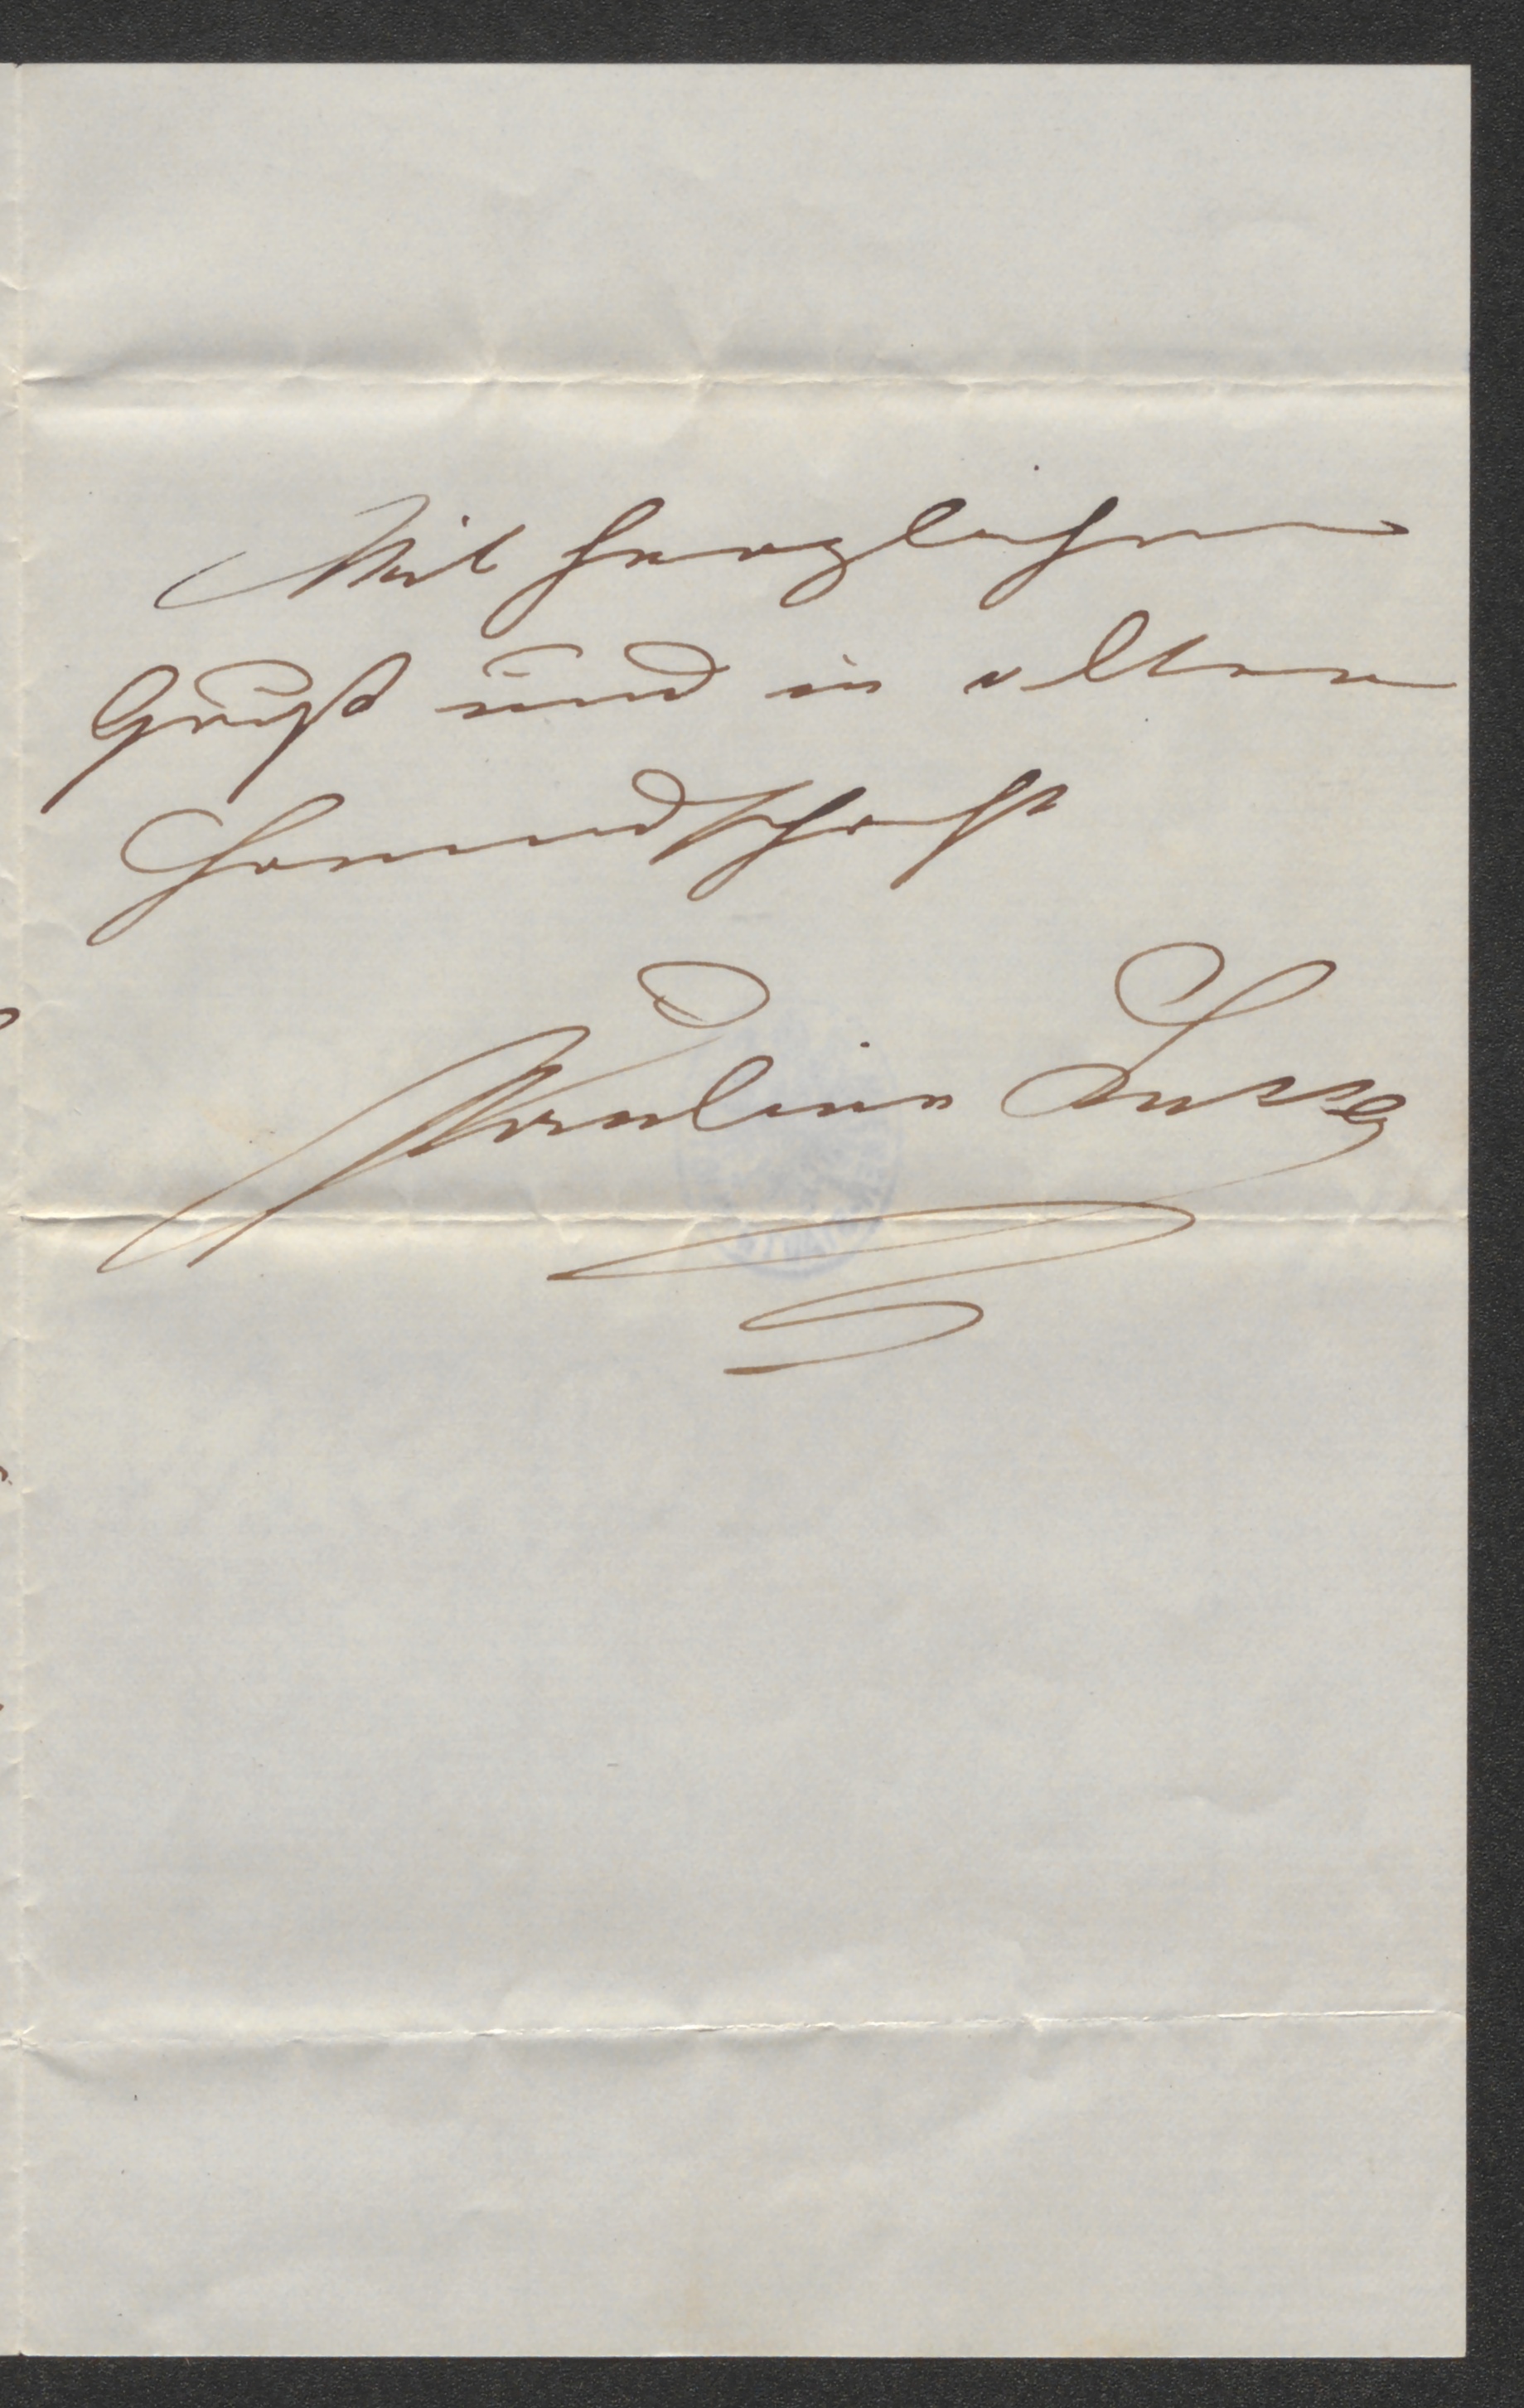 Mit herzlichem
Gruß und in alter
Freundschaft
Pauline Lucca